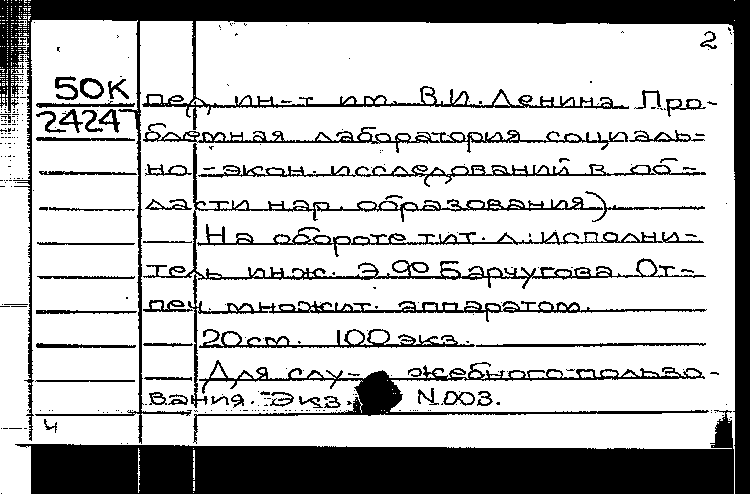 2
50К пед. ин-т им. В.И.Ленина. Про-
24247 блемная лаборатория социаль-
но-экон. исследований в об-
ласти нар. образования).
На обороте тит. л.: исполни-
тель инж. Э.Ф Барчугова. От-
печ. множит. аппаратом.
20 см. 100 экз.
Для слу-жебного пользо-
вания. Экз. N.003.
ч